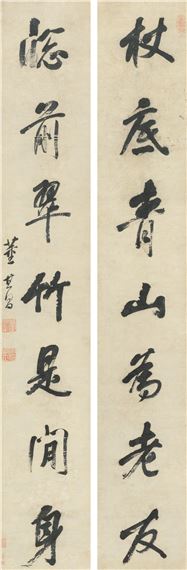 杖底青山為老友
牕前翠竹是閒身
董其昌